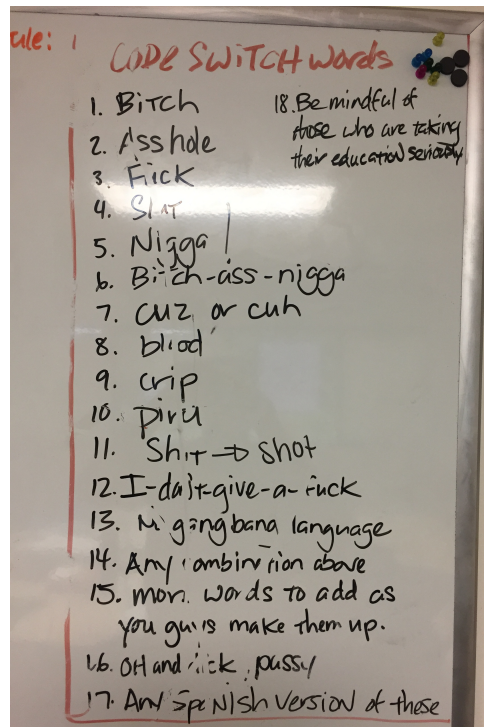 ule: 1
CODE SWITCH words
1. BiTCH
2. Asshole
3. Fuck
4. Slut
5. Nigga
6. Bitch-ass-nigga
7. cuz or cuh
8. blood
9. crip
10. piru
11. Shit → shot
12. I-don't-give-a-fuck
13. No gangbang language
14. Any combination above
15. more words to add as
you guys make them up.
16. OH and dick, pussy
17. Any Spenish version of these
18. Be mindful of
those who are taking
their education seriously